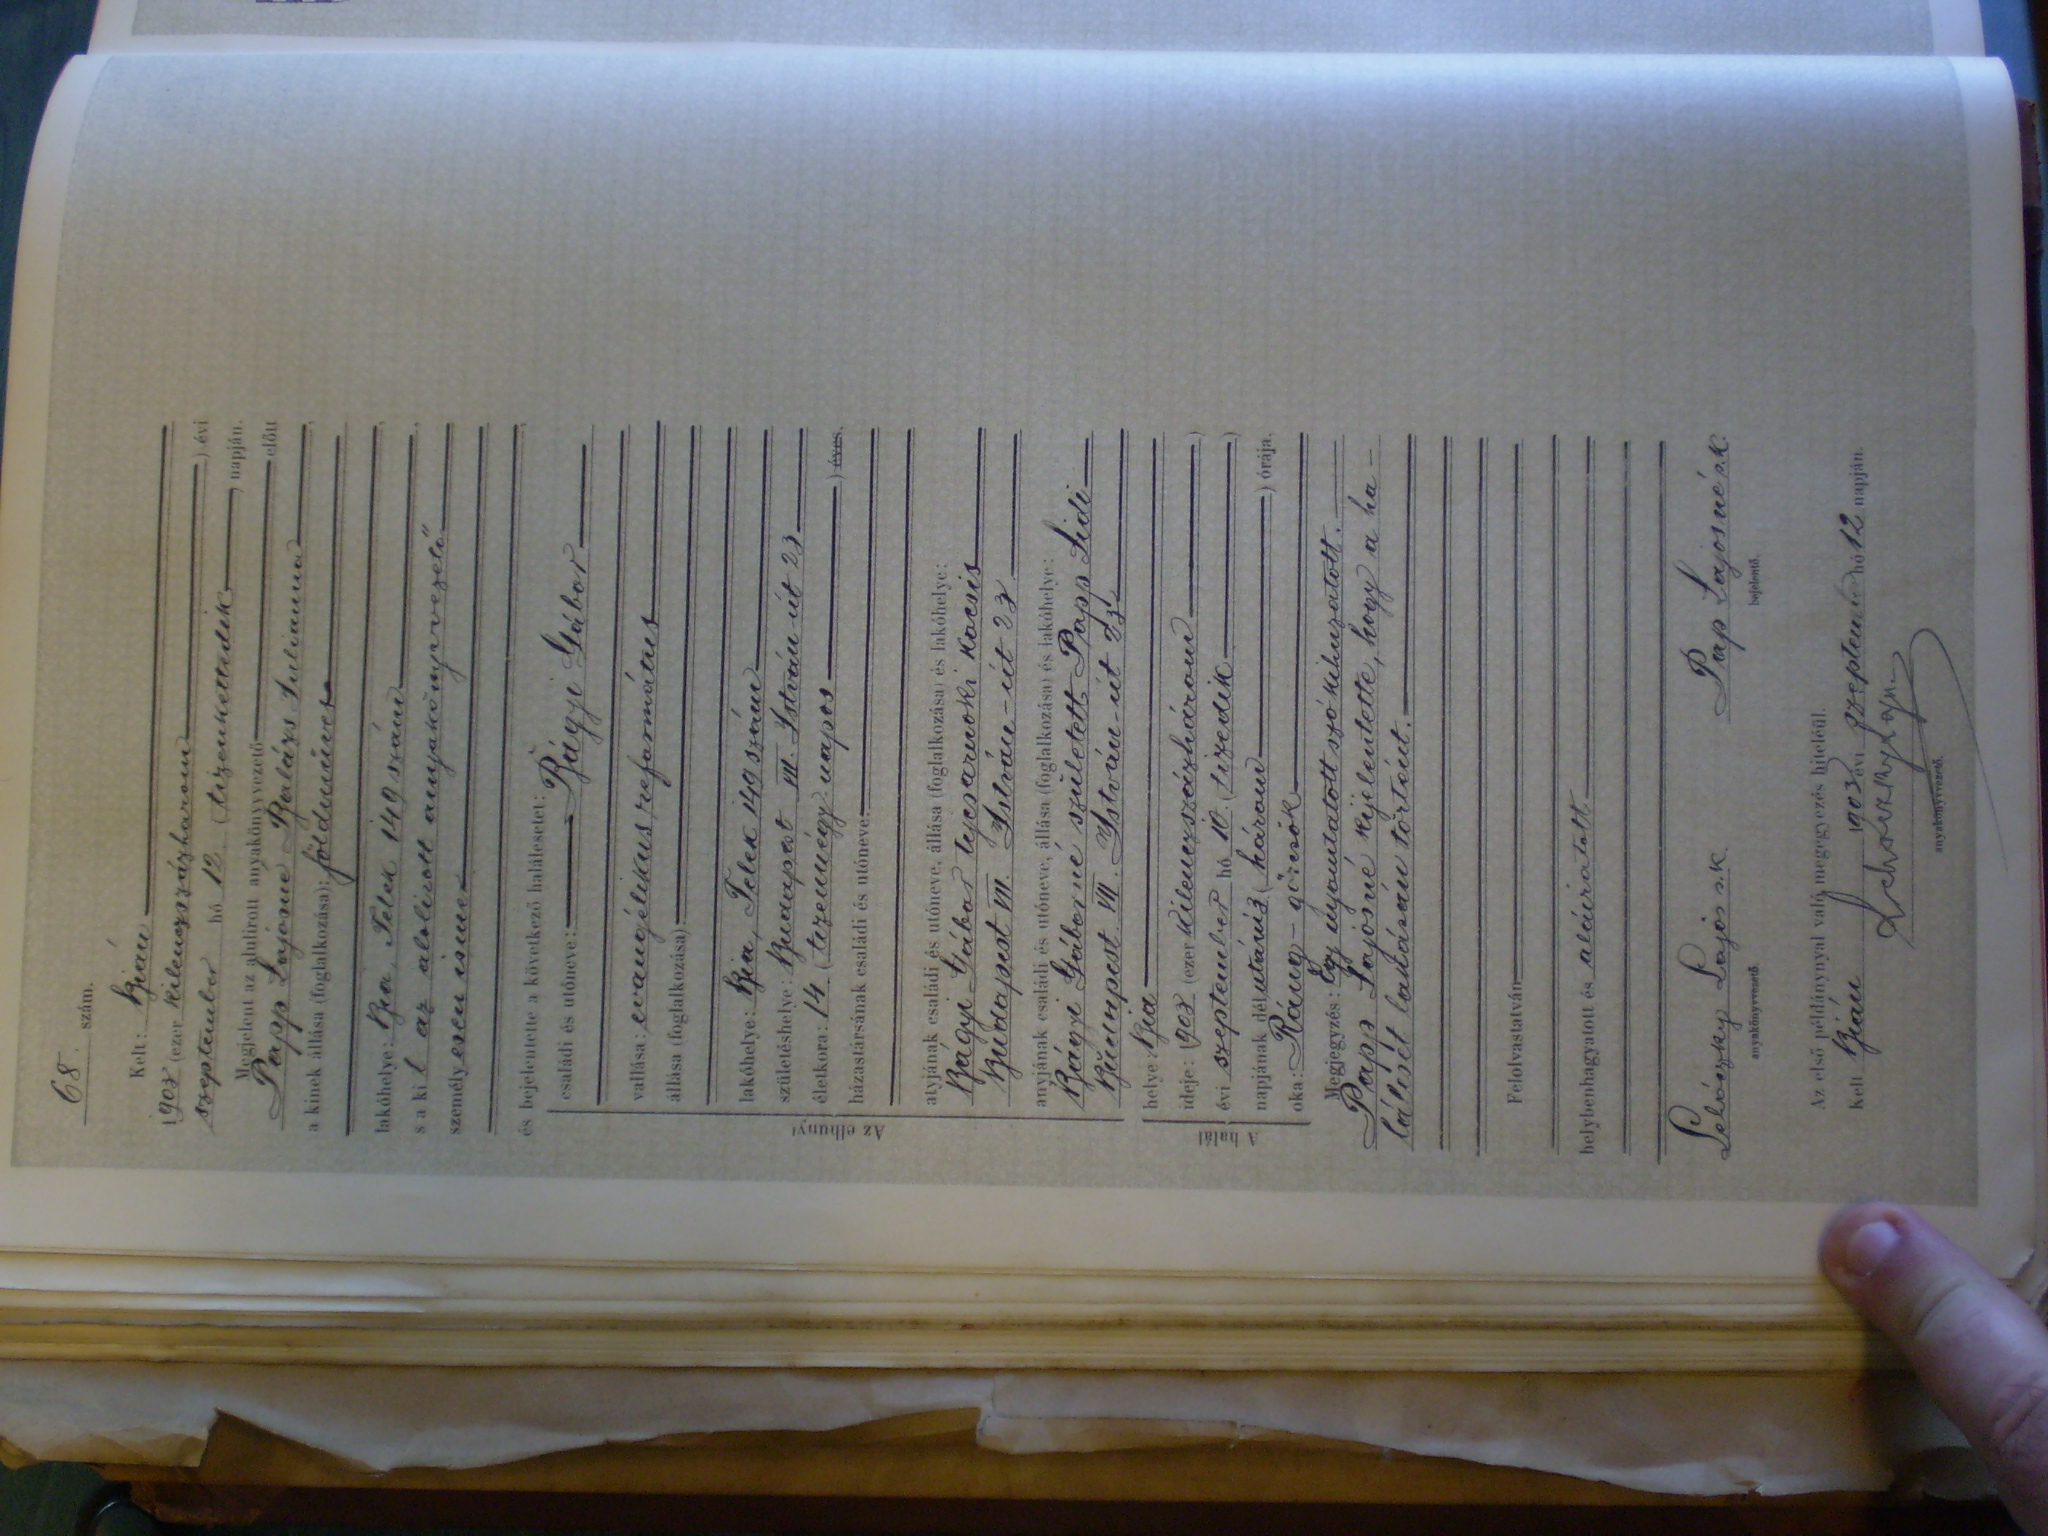 68. szám.
Kelt: Bián
1903 (ezer kilenczszázhárom) évi
szeptember hó 12 (tizenkettedik) napján.
Megjelent az alulirott anyakönyvvezető előtt
Papp Lajosné Balázs Julianna,
a kinek állása (foglalkozása): földmüves
lakóhelye: Bia, Telek 149 szám,
s a ki t az alolirott anyakönyvvezető
személyesen ismer,
és bejelentette a következő halálesetet:
Az elhunyt
családi és utóneve: Bágyi Gábor
vallása: evangélikus református
állása (foglalkozása):
lakóhelye: Bia, Telek 149 szám
születéshelye: Budapest VII. István-út 23
életkora: 14 (tizennégy napos) éves,
házastársának családi és utóneve:
atyjának családi és utóneve, állása (foglalkozása) és lakóhelye:
Bágyi Gábor kocsis
Budapest VII. István-út 23.
anyjának családi és utóneve, állása (foglalkozása) és lakóhelye:
Bágyi Gáborné született Papp Lidi
Budapest VII. István-út 23.
A halál
helye: Bia
ideje: 1903 (ezer kilenczszázhárom)
évi szeptember hó 10 (tizedik)
napjának délután 3 (három) órája,
oka: Ráng-görcsök
Megjegyzés: Egy nyomtatott szó kihuzatott.
Papp Lajosné kijelentette, hogy a ha-
lálesét tudásán történt.
Felolvastatván
helybenhagyatott és aláiratott.
Pap Lajosné s.k.
bejelentő.
Lajos s.k.
anyakönyvvezető.
Az első példánynyal való megegyezés hiteléül.
Kelt Bián 1903 évi szeptember hó 12 napján.
anyakönyvvezető.